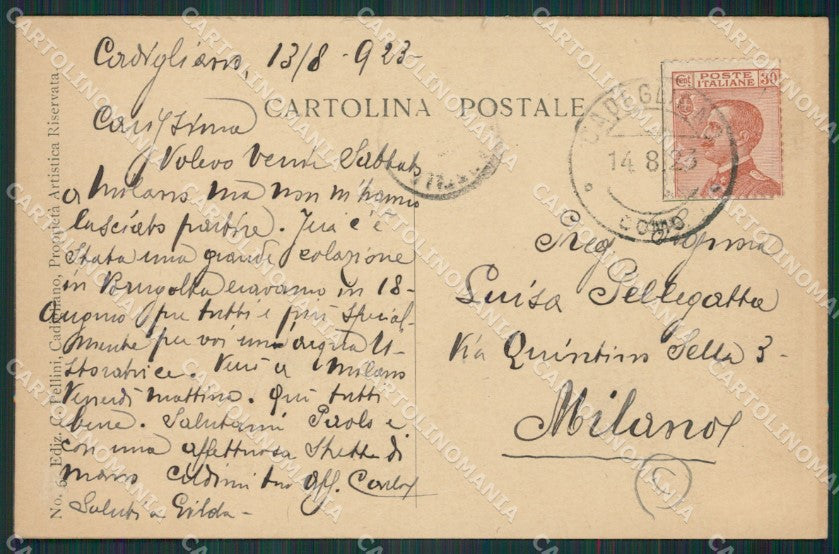 Cadigliano, 13/8 - 923 -
CARTOLINA POSTALE
Carissima
Volevo venir Sabato
a Milano ma non m'hanno
lasciato partire. Ieri c'è
stata una grande colazione
in eravamo in 18 -
per tutti e più special-
mente per voi una
Verrò a Milano
Venerdì mattina. Qui tutti
bene. Salutami Paolo e
con una affettuosa stretta di
mano aff. Carlo
Saluti a Gilda -
No. Ediz. C. Pellini, Cadegliano, Proprietà Artistica Riservata.
Cent. POSTE ITALIANE 30
CADEGLIANO
14.8.23
COMO
Luisa Pellegatta
Via Quintino Sella 3 -
Milano
C
CARTOLINOMANIA